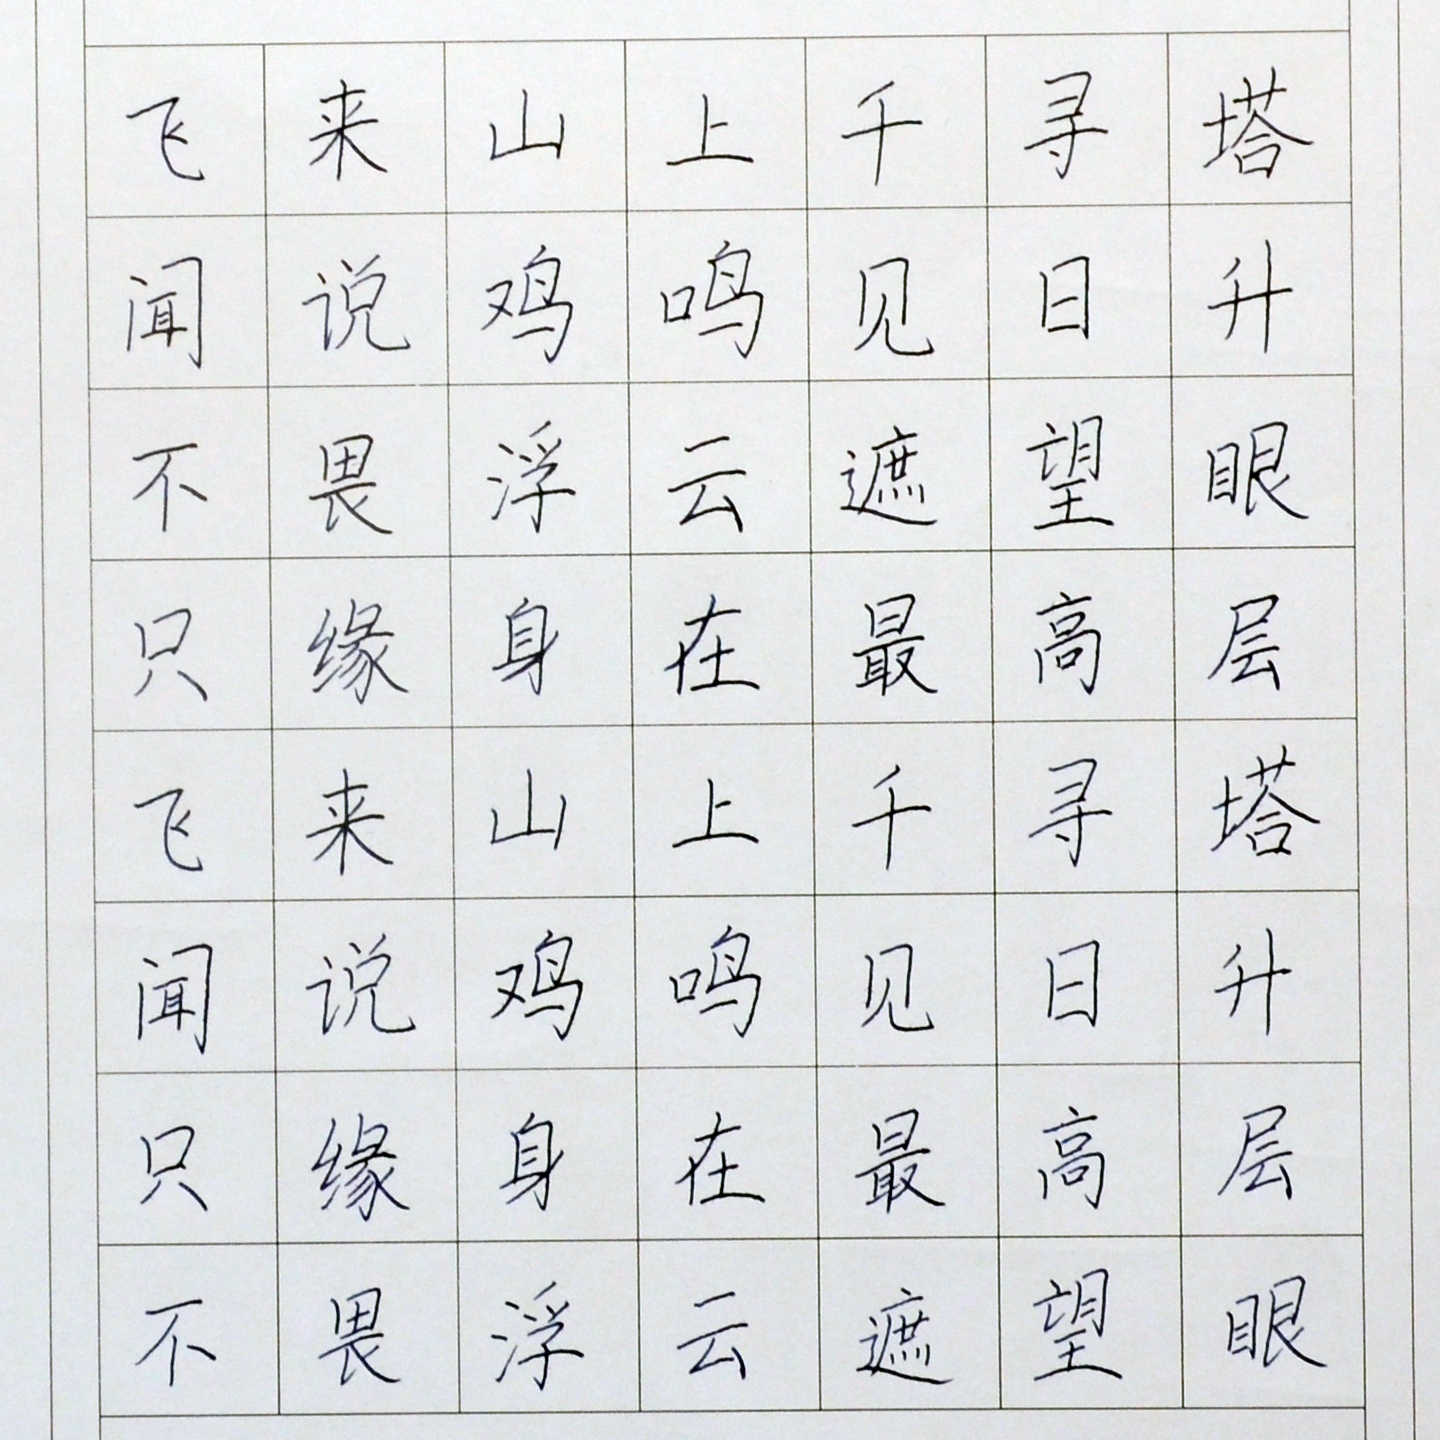 飞来山上千寻塔
闻说鸡鸣见日升
不畏浮云遮望眼
只缘身在最高层
飞来山上千寻塔
闻说鸡鸣见日升
只缘身在最高层
不畏浮云遮望眼